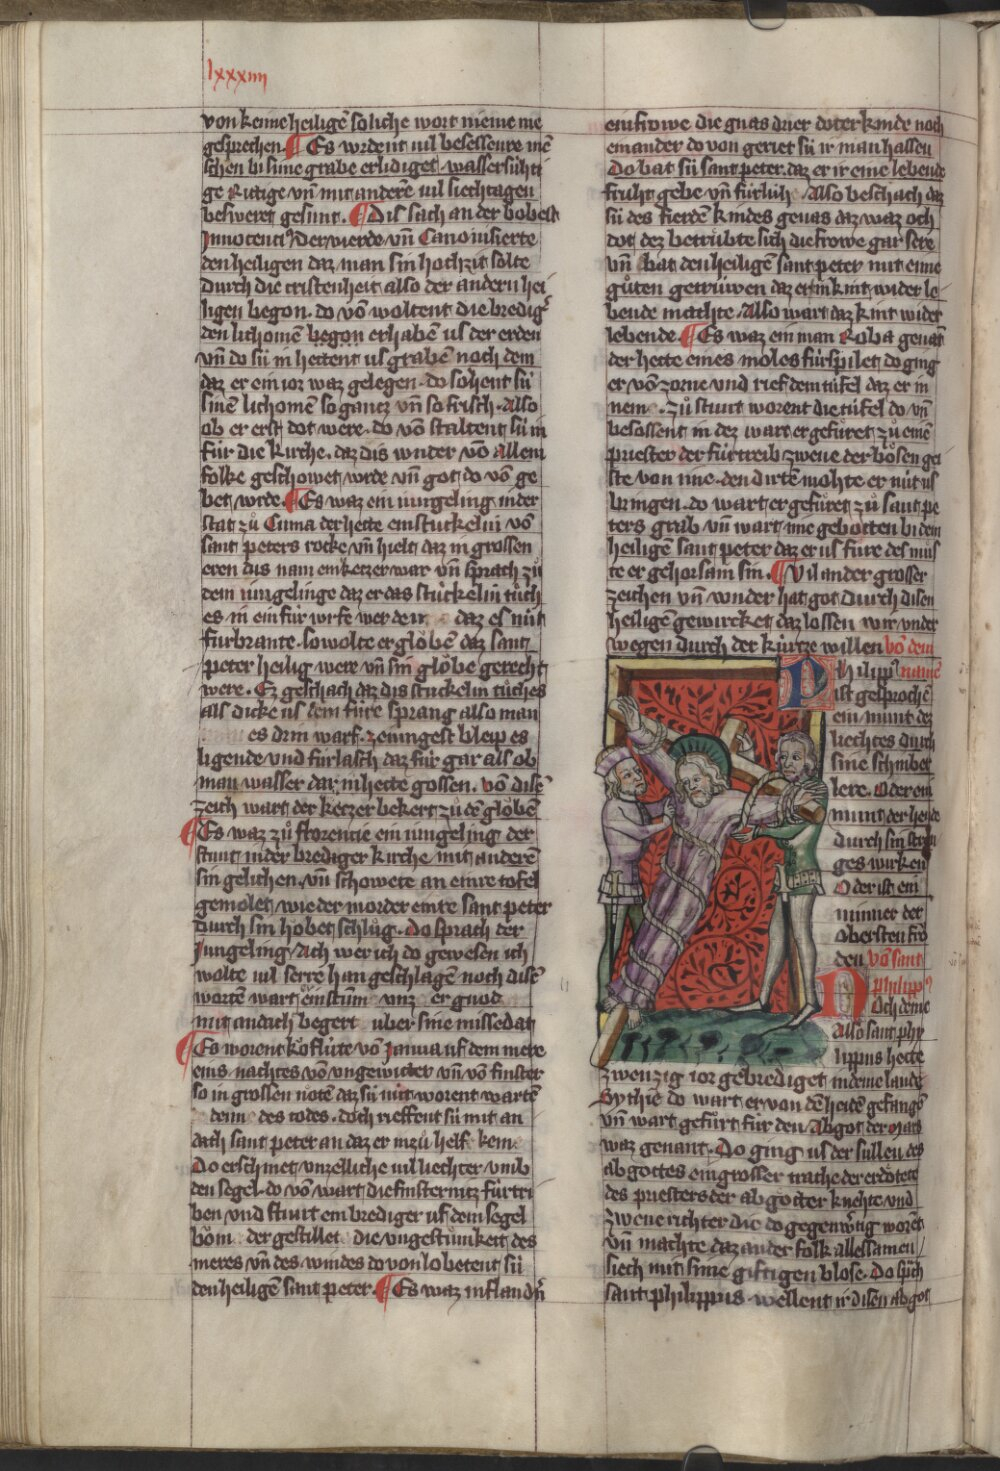 lxxxiiii
von keime heiligē soliche wort nieme me
gesprechen. Es wrdent vil besessenre mē
schen bi sime grabe erlidiget wassersühti
ge Rittige vn̄ mit anderē vil siechtagen
beswert gesunt. Dis sach an der bobest
Innocenti⁹ der vierde vn̄ Canonisierte
den heiligen daz man sin hochzit solte
durch die cristenheit also der andern hei
ligen begon. do vō woltent die bredig͛
den lichomē begon erhabē us der erden
vn̄ do sü in hettent us grabē noch dem
daz er ein ior waz gelegen. do sohent sü
sinē lichomē so gantz vn̄ so frisch. Also
ob er erst dot were. do vō staltent sü in
für die kirche. daz dis wnder vō allem
folke geschowet wrde vn̄ got do vō ge
bet wrde. Es waz ein iungeling in der
stat zů Cuma der hette ein stuckelin vō
sant peters rocke vn̄ hielt daz in grossen
eren dis nam ein ketzer war vn̄ sprach zů
dem iungelinge daz er das stückelin tůch
es in ein für wrfe werden daz es nüt
fürbrante. so wolte er glöbē daz sant
peter heilig were vn̄ sin glöbe gerecht
were. Ez geschach daz dis stuckelin tůches
als dicke us dem füre sprang also man
es drin warf. zeiungest bleip es
ligende vnd fürlasch daz für gar als ob
man wasser dar in hette gossen. vō disē
zeich wart der ketzer bekert zů dē glöbē
Es waz zů florencie ein iungeling der
stunt in der brediger kirche mit anderē
sin gelichen. vn̄ schowete an einre tofel
gemolet wie der morder einre sant peter
durch sin höbet schlůg. Do sprach der
Jungeling Ach wer ich do gewesen ich
wolte vil serre han geschlagē noch disē
wortē wart er ein stum vnz er gnod
mit andach begert über sine missedat
Es worent köflüte vō Janua uf dem mere
eins nachtes vō vngewitter vn̄ vō finster
so in grossen nötē daz sü nüt worent wartē
denn des todes. doch rieffent sü mit an
dach sant peter an daz er in zů helf kem
Do erschinet vnzelliche vil liechter vmb
den segel. do vō wart die finsternitz fürtri
ben vnd stunt ein brediger uf dem segel
böm der gestillet die vngestümkeit des
meres vn̄ des windes do von lobetent sü
den heiligē sant peter. Es waz in flandr̄
ein frowe die gnas drier doter kinde noch
einander do von geriet sü ir man hassen
Do bat sü sant peter. daz er ir eine lebende
fruht gebe vn̄ fürlüh. Also beschach daz
sü des fierdē kindes genas daz waz och
dot dez betrübte sich die frowe gar sere
vn̄ bat den heiligē sant peter mit eime
gůten getrüwen daz er ir in kint wider le
bende machte. Also wart daz kint wider
lebende. Es waz ein man Roba genant
der hette eines moles fürspilet do ging
er vō zorne vnd rief dem tüfel daz er in
nem. Zů stunt worent die tüfel do vn̄
besossent in dez wart er gefůret zů einē
priester der fürtreib zwene der bösen gei
ste von ime. den dirtē mohte er nüt us
bringen. do wart er gefůret zů sant pe
ters grab vn̄ wart ime gebotten bi dem
heiligē sant peter daz er us füre des můs
te er gehorsam sin. Vil ander grosser
zeichen vn̄ wnder hat got durch disen
heiligē gewircket daz lossen wir vnder
wegen durch der kürtze willen vō dem
Philipp⁹ namē
ist gesprochē
ein munt dez
liechtes durch
sine schinber
lere. Oder ein
munt der hende
durch sin
ges wircken
Oder ist ein
minner der
Obersten frō
den vō sant
philipp⁹
Noch deme
Also sant phy
lippus hette
zwenzig ior gebrediget in deme lande
Sythie do wart er von dē heidē gefangē
vn̄ wart gefůrt für den Abgot der mars
waz genant. Do ging us der süllen des
abgottes ein grosser trache der erdötete
des priesters der abgötter knehte vnd
zwene richter die do gegenw͛tig worēt
vn̄ machte daz ander folk allessamen
siech mit sime giftigen blose. Do sp͛ch
sant philippus wellent ir disen abgot